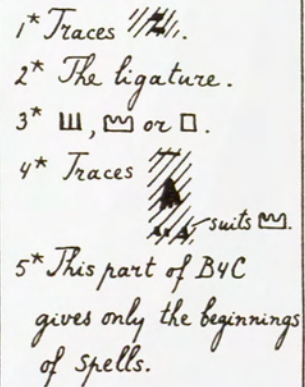 1* Traces
2* The ligature.
3* Ш, or □.
4* Traces
suits
5* This part of B4C
gives only the beginnings
of spells.